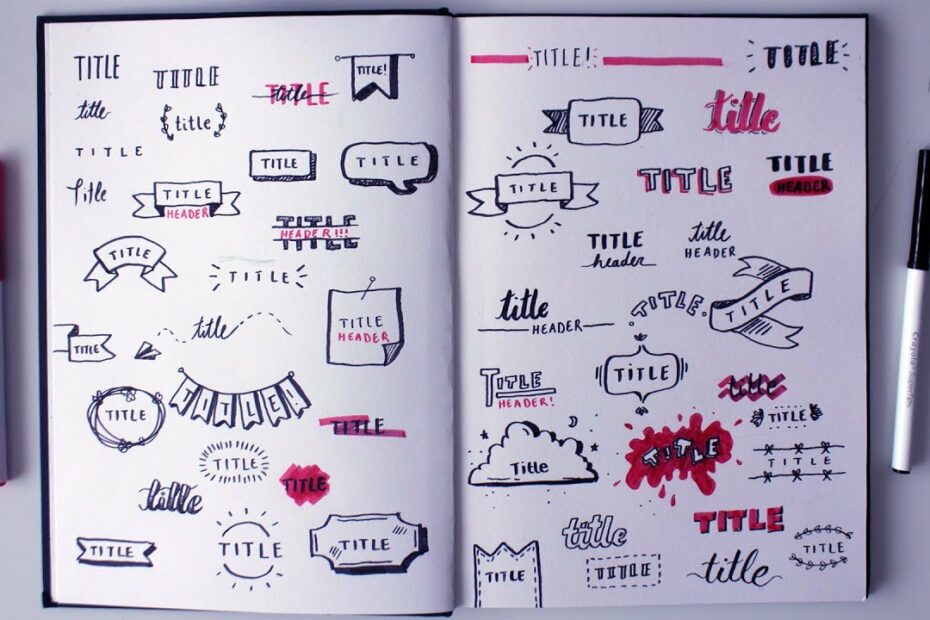 TITLE
TITLE
title
TITLE!
title
title
TITLE
TITLE
TITLE
Title
TITLE
HEADER
TITLE
HEADER!!!
TITLE
TITLE
title
TITLE
HEADER
TITLE
TITLE
TITLE!
TITLE
TITLE
TITLE
title
TITLE
TITLE
TITLE
TITLE!
TITLE
TITLE
title
TITLE
TITLE
TITLE
HEADER
TITLE
header
title
HEADER
title
HEADER
TITLE
TITLE
TITLE
HEADER!
TITLE
title
TITLE
Title
TITLE
TITLE
title
TITLE
TITLE
TITLE
TITLE
title
Crayola